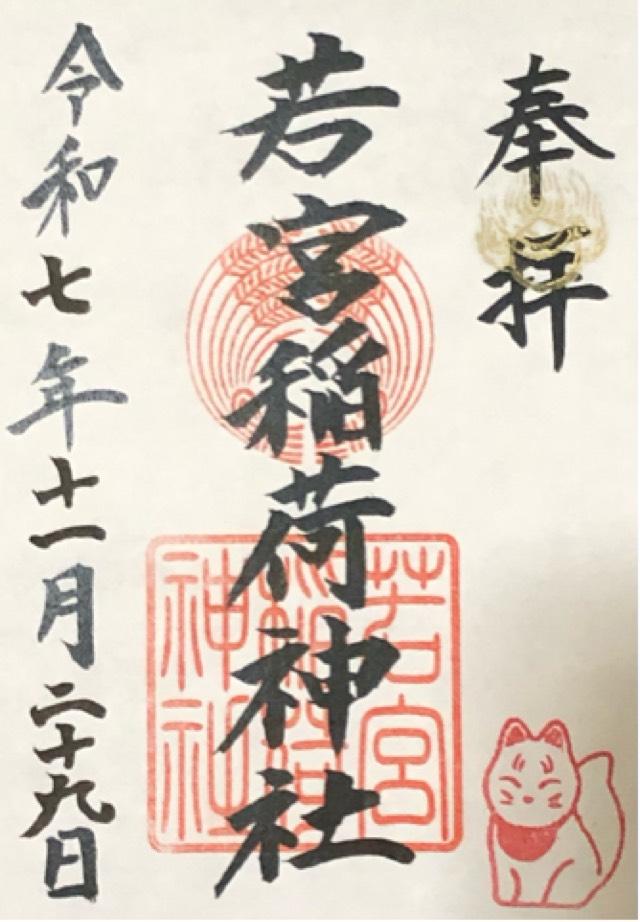 奉拝
若宮稲荷神社
若宮
稲荷
神社
令和七年十一月二十九日